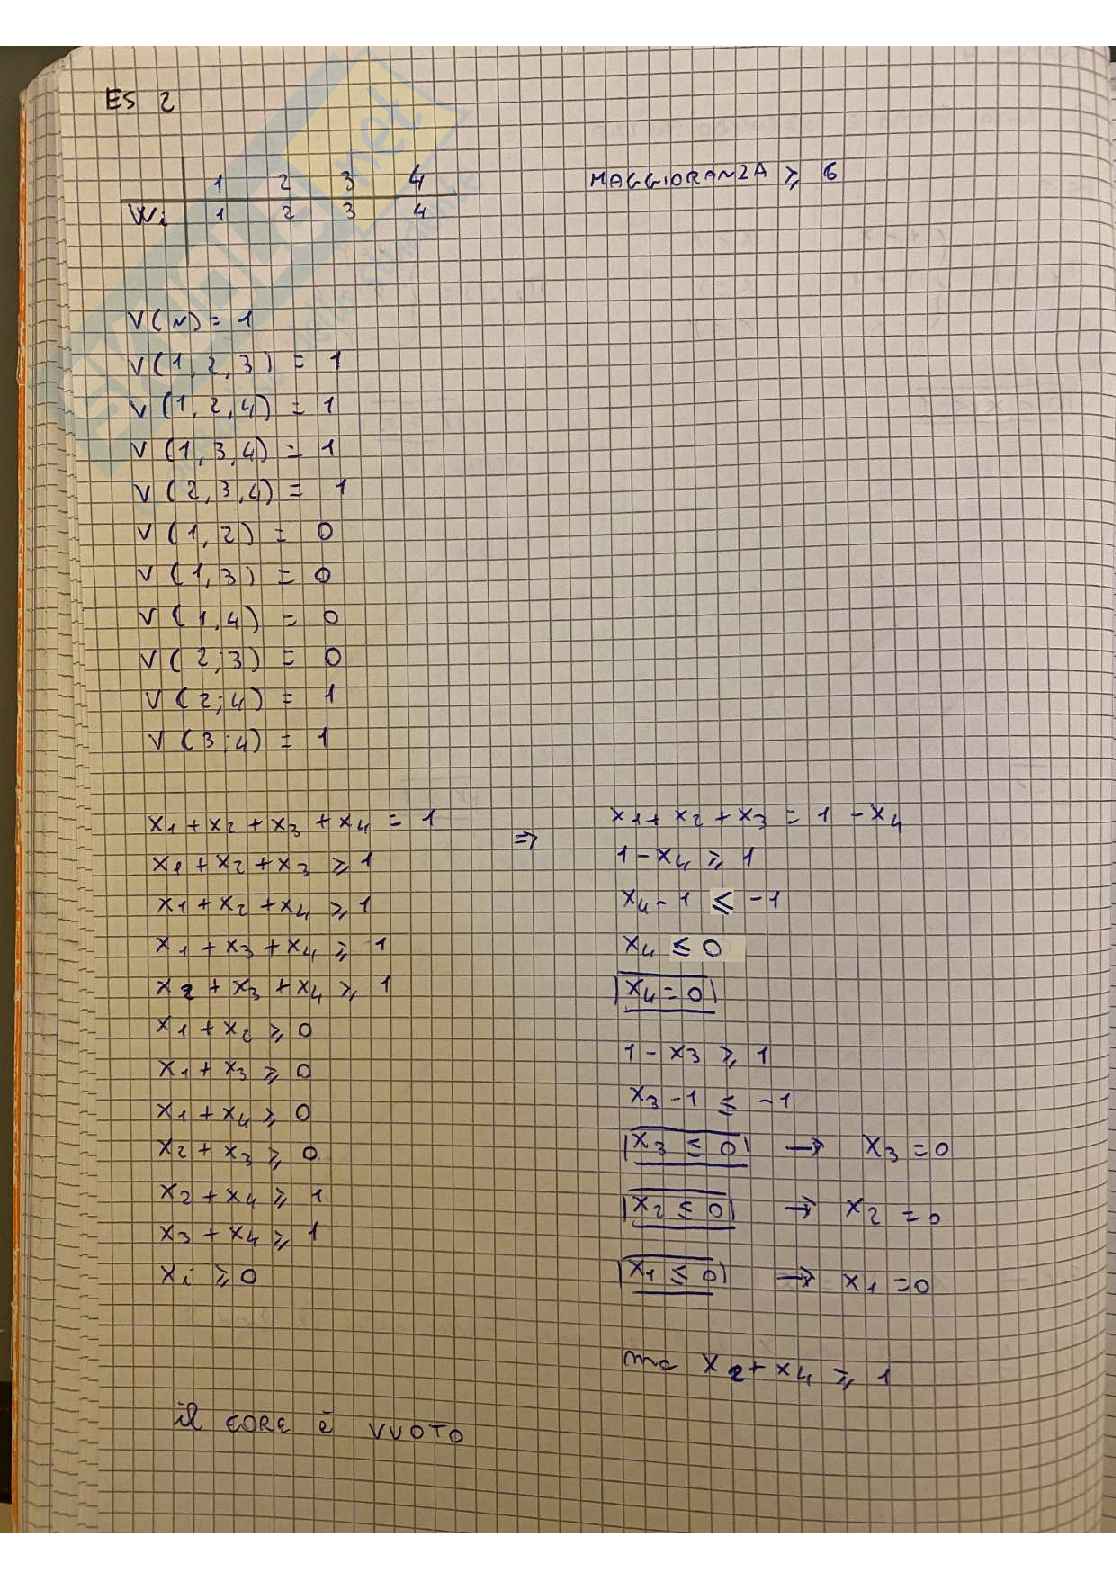 ES 2
1 2 3 4 MAGGIORANZA ≥ 6
Wi 1 2 3 4
V(N) = 1
V(1,2,3) = 1
V(1,2,4) = 1
V(1,3,4) = 1
V(2,3,4) = 1
V(1,2) = 0
V(1,3) = 0
V(1,4) = 0
V(2;3) = 0
V(2;4) = 1
V(3;4) = 1
x1 + x2 + x3 + x4 = 1 ⇒
x1 + x2 + x3 ≥ 1
x1 + x2 + x4 ≥ 1
x1 + x3 + x4 ≥ 1
x2 + x3 + x4 ≥ 1
x1 + x2 ≥ 0
x1 + x3 ≥ 0
x1 + x4 ≥ 0
x2 + x3 ≥ 0
x2 + x4 ≥ 1
x3 + x4 ≥ 1
xi ≥ 0
x1 + x2 + x3 = 1 - x4
1 - x4 ≥ 1
x4 - 1 ≤ -1
x4 ≤ 0
x4 = 0
1 - x3 ≥ 1
x3 - 1 ≤ -1
x3 ≤ 0 → x3 = 0
x2 ≤ 0 → x2 = 0
x1 ≤ 0 → x1 = 0
ma x2 + x4 ≥ 1
il CORE è VUOTO